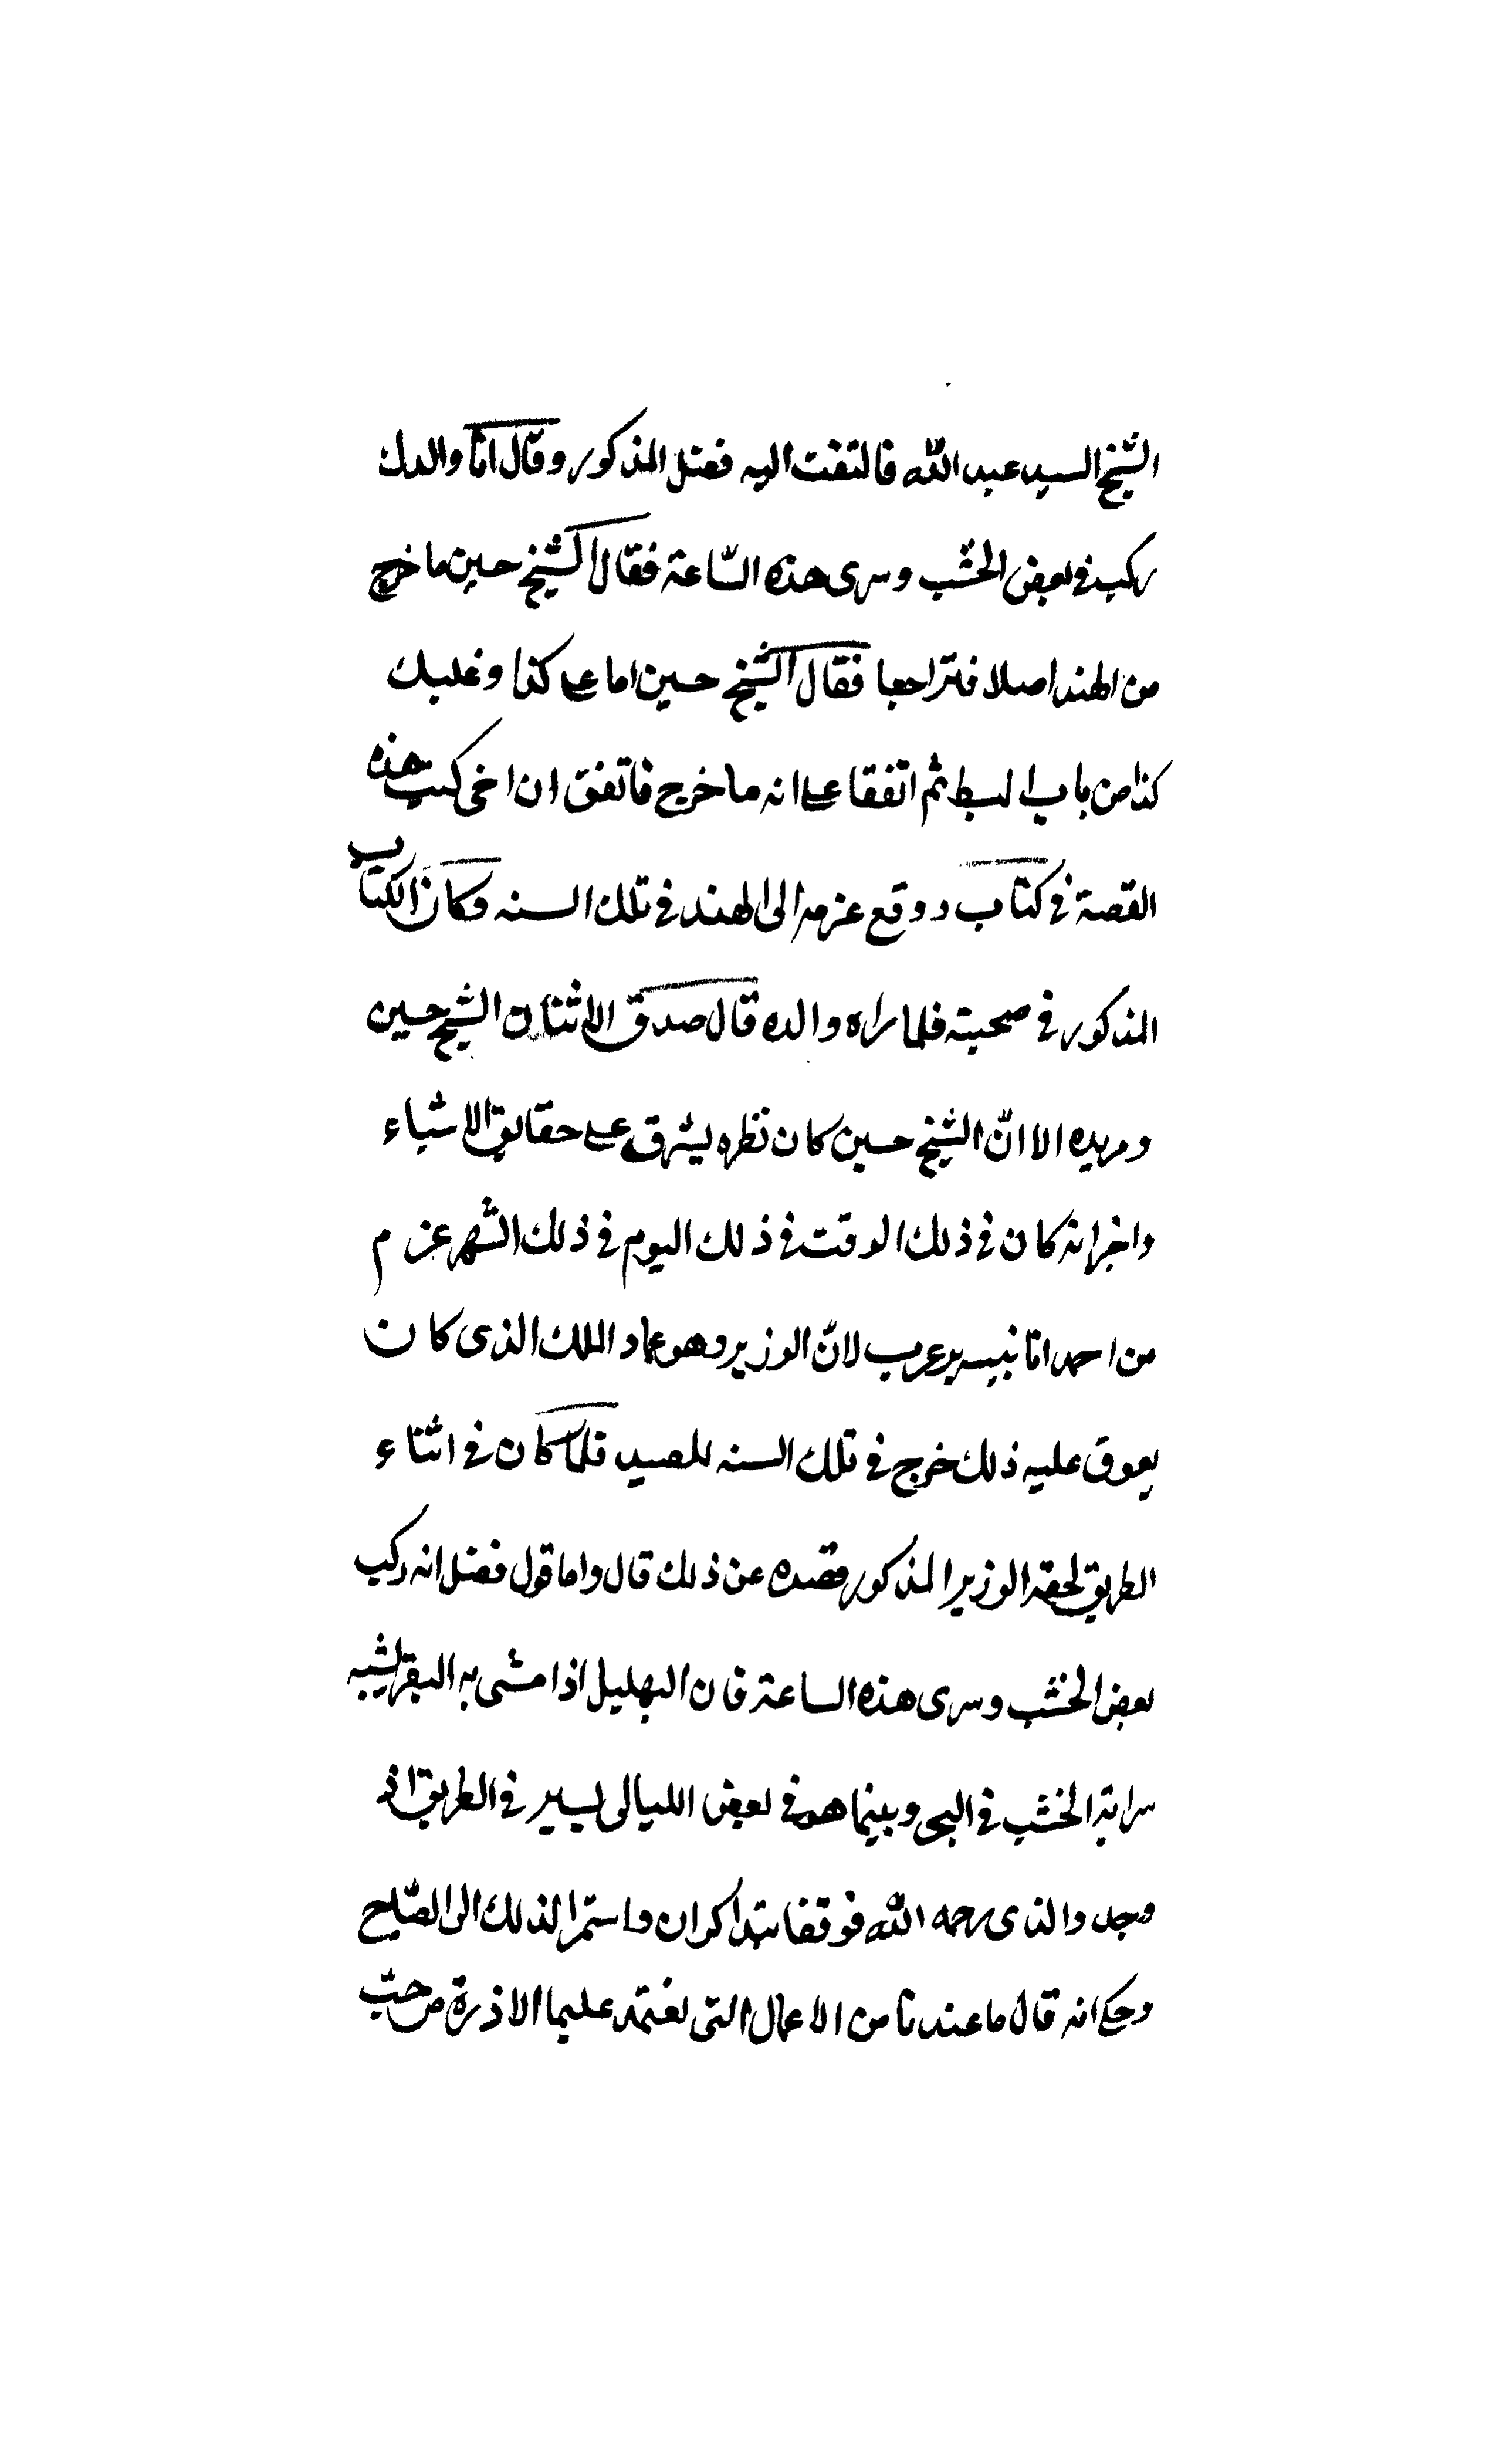 الشيخ السيد عبد الله فالتفت اليه فضل المذكور وقال امّا والدك
ركب في بعض الخشب وسرى هذه السّاعة فقال الشيخ حسين ما خرج
من الهند اصلا فتراجعا فقال الشيخ حسين اما علي كذا وعليك
كذا من باب البسط ثم اتفقا على انه ما خرج فاتفق ان اخى كتب هذه
القصة في كتاب ووقع عزمه الى الهند في تلك السنه فكان الكتاب
المذكور في صحبته فلما راه والده قال صدق الاثنان الشيخ حسين
ومريده الا انّ الشيخ حسين كان نظره يشرق على حقايق الاشياء
واخبر انه كان في ذلك الوقت في ذلك اليوم في ذلك الشهر عزم
من احمداناد بسير عرب لانّ الوزير وهو عماد الملك الذى كان
يعوق عليه ذلك خرج في تلك السنه للصيد فلما كان في اثناء
الطريق لحقه الوزير المذكور فصده عن ذلك قال واما قول فضل انه ركب
بعض الخشب وسرى هذه الساعة فان البهليل اذا مشى به البقر يشبه
سراية الخشب في البحر وبينما هو في بعض الليالى يسير في الطريق اذ
وجد والدى رحمه الله فوقفا يتذاكران واستمرا لذلك الى الصّباح
وحكى انه قال ما عندنا من الاعمال التى نعتمد عليها الا ذرة من حبّ